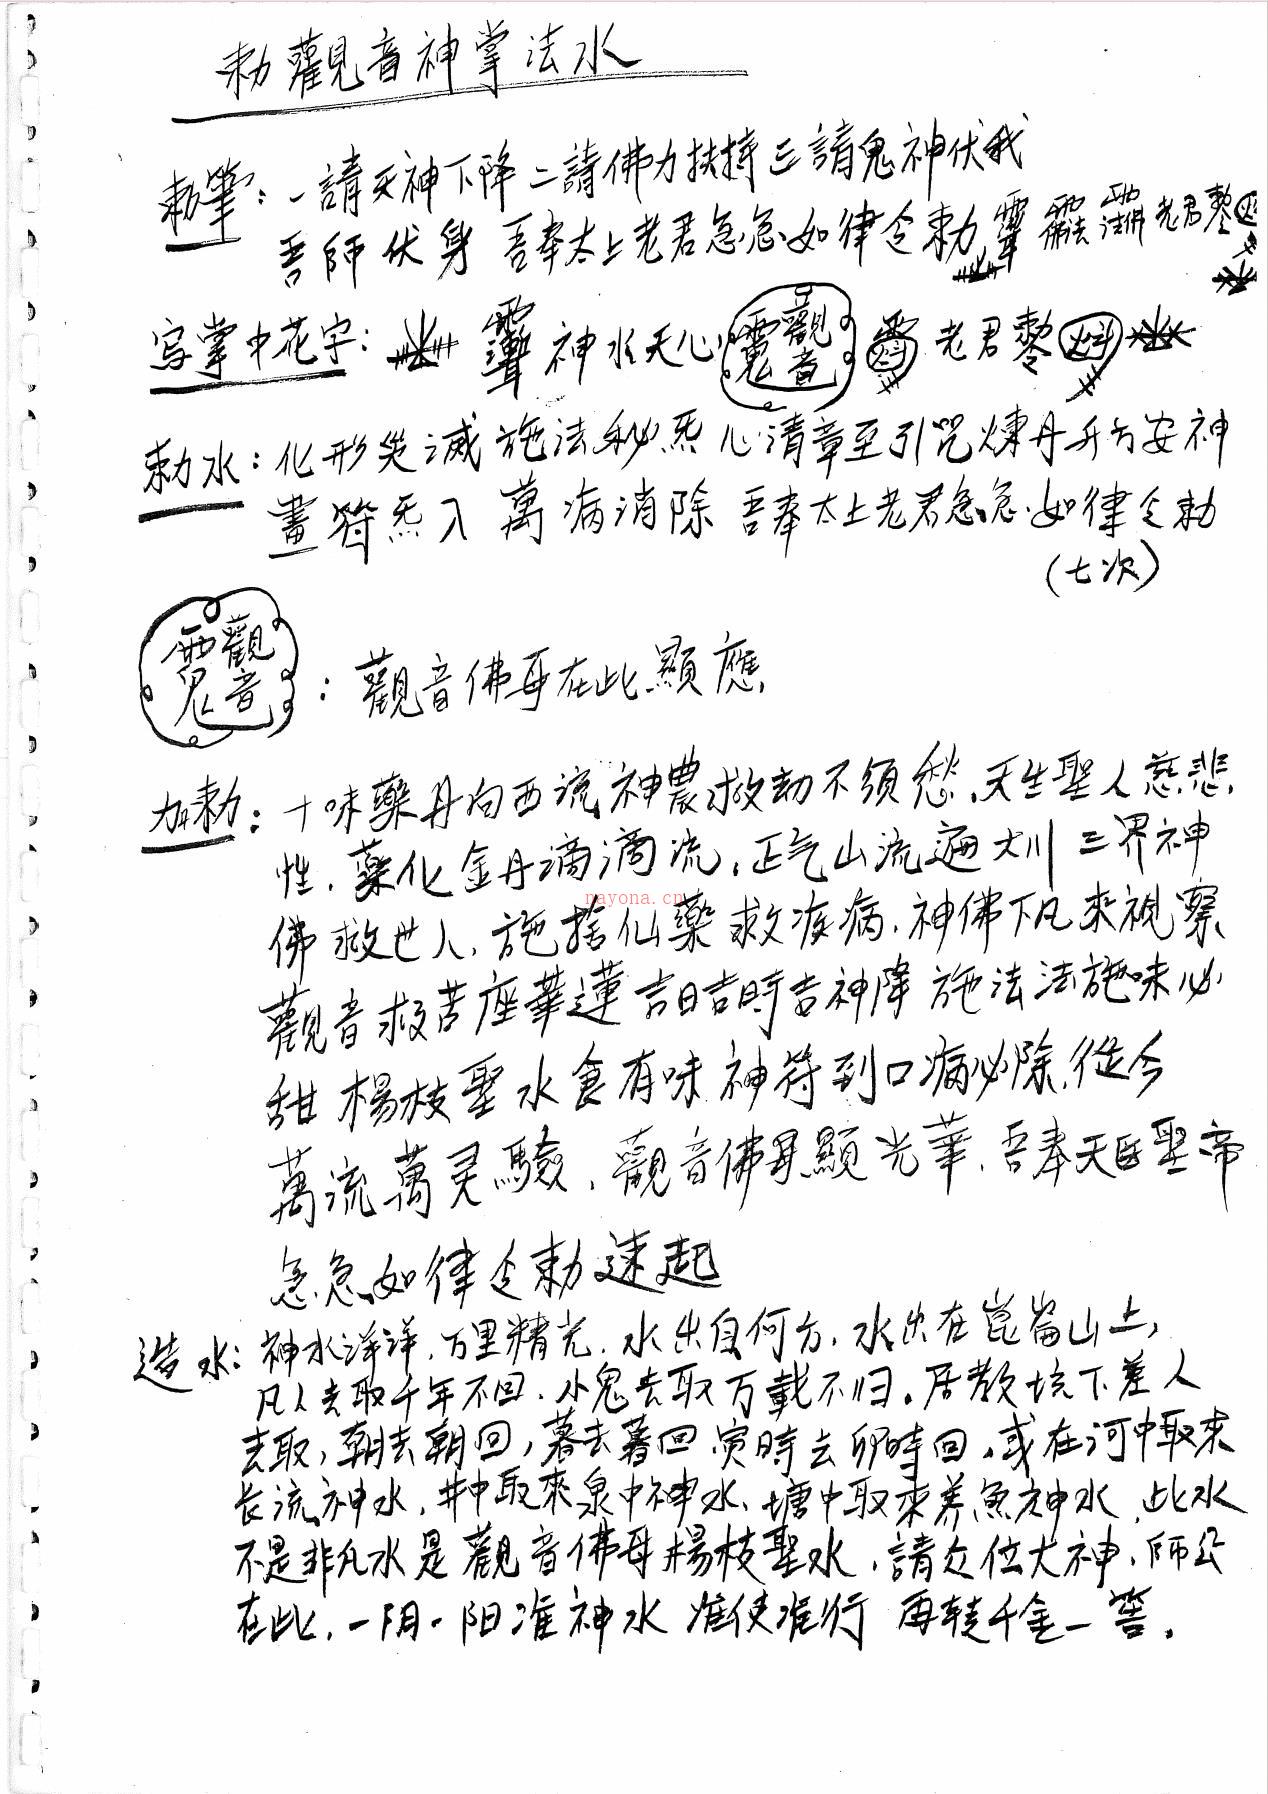 勅觀音神掌法水
勅筆：一請天神下降二請佛力扶持三請鬼神伏我
吾師伏身 吾奉太上老君急急如律令勅 老君
写掌中花字： 神水天心 觀音 老君
勅水：化形災滅施法秘炁心清章至引咒煉丹升方安神
畫符炁入萬病消除吾奉太上老君急急如律令勅
(七次)
觀音：觀音佛母在此顯應
加勅：十味藥丹向西流神農救劫不須愁，天生聖人慈悲，
性，藥化金丹滴滴流，正气山流遍大川三界神
佛救世人，施捨仙藥救疾病，神佛下凡來視察
nayona.cn
觀音救苦座華蓮吉日吉時吉神降施法法施味必
甜楊枝聖水食有味神符到口病必除，從今
萬流萬灵驗，觀音佛母顯光華，吾奉天醫聖帝
急急如律令勅速起
造水：神水洋洋，万里精光，水出自何方，水出在崑崙山上，
凡人去取千年不回，小鬼去取万載不归。居教坑下差人
去取，朝去朝回，暮去暮回寅時去卯時回，或在河中取來
長流神水，井中取來泉中神水，塘中取來养魚神水，此水
不是非凡水是觀音佛母楊枝聖水，請众位大神，師公
在此，一阴一阳准神水准使准行再轉千金一筶。